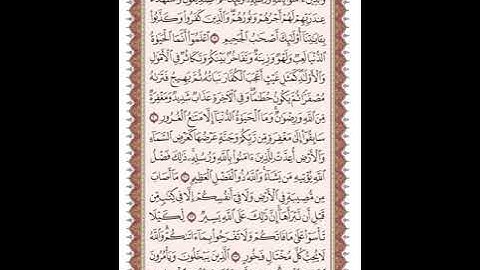 وَٱلَّذِينَ ءَامَنُوا۟ بِٱللَّهِ وَرُسُلِهِۦٓ أُو۟لَٰٓئِكَ هُمُ ٱلصِّدِّيقُونَ وَٱلشُّهَدَآءُ
عِندَ رَبِّهِمْ لَهُمْ أَجْرُهُمْ وَنُورُهُمْ وَٱلَّذِينَ كَفَرُوا۟ وَكَذَّبُوا۟
بِـَٔايَٰتِنَآ أُو۟لَٰٓئِكَ أَصْحَٰبُ ٱلْجَحِيمِ ١٩ ٱعْلَمُوٓا۟ أَنَّمَا ٱلْحَيَوٰةُ
ٱلدُّنْيَا لَعِبٌ وَلَهْوٌ وَزِينَةٌ وَتَفَاخُرٌۢ بَيْنَكُمْ وَتَكَاثُرٌ فِى ٱلْأَمْوَٰلِ
وَٱلْأَوْلَٰدِ كَمَثَلِ غَيْثٍ أَعْجَبَ ٱلْكُفَّارَ نَبَاتُهُۥ ثُمَّ يَهِيجُ فَتَرَىٰهُ
مُصْفَرًّا ثُمَّ يَكُونُ حُطَٰمًا وَفِى ٱلْءَاخِرَةِ عَذَابٌ شَدِيدٌ وَمَغْفِرَةٌ
مِّنَ ٱللَّهِ وَرِضْوَٰنٌ وَمَا ٱلْحَيَوٰةُ ٱلدُّنْيَآ إِلَّا مَتَٰعُ ٱلْغُرُورِ ٢٠
سَابِقُوٓا۟ إِلَىٰ مَغْفِرَةٍ مِّن رَّبِّكُمْ وَجَنَّةٍ عَرْضُهَا كَعَرْضِ ٱلسَّمَآءِ
وَٱلْأَرْضِ أُعِدَّتْ لِلَّذِينَ ءَامَنُوا۟ بِٱللَّهِ وَرُسُلِهِۦ ذَٰلِكَ فَضْلُ
ٱللَّهِ يُؤْتِيهِ مَن يَشَآءُ وَٱللَّهُ ذُو ٱلْفَضْلِ ٱلْعَظِيمِ ٢١ مَآ أَصَابَ
مِن مُّصِيبَةٍ فِى ٱلْأَرْضِ وَلَا فِىٓ أَنفُسِكُمْ إِلَّا فِى كِتَٰبٍ مِّن
قَبْلِ أَن نَّبْرَأَهَآ إِنَّ ذَٰلِكَ عَلَى ٱللَّهِ يَسِيرٌ ٢٢ لِّكَيْلَا
تَأْسَوْا۟ عَلَىٰ مَا فَاتَكُمْ وَلَا تَفْرَحُوا۟ بِمَآ ءَاتَىٰكُمْ وَٱللَّهُ
لَا يُحِبُّ كُلَّ مُخْتَالٍ فَخُورٍ ٢٣ ٱلَّذِينَ يَبْخَلُونَ وَيَأْمُرُونَ